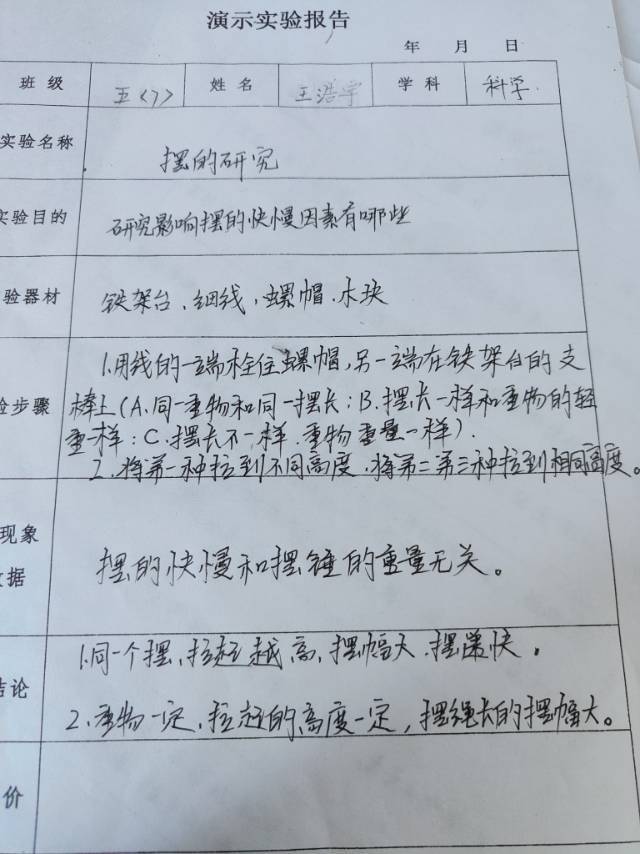 演示实验报告
年 月 日
班级 五<7> 姓名 王浩宇 学科 科学.
实验名称 摆的研究
实验目的 研究影响摆的快慢因素有哪些
验器材 铁架台、细线,螺帽.木块
1.用线的一端栓住螺帽,另一端在铁架台的支
步骤 棒上(A.同一重物和同一摆长:B.摆长一样和重物的轻
重一样:C.摆长不一样.重物重量一样).
2.将第一种拉到不同高度.将第二第三种拉到相同高度。
现象
摆的快慢和摆锤的重量无关。
据
1.同一个摆,拉起越高,摆幅大.摆速快.
结论
2.重物一定,拉起的高度一定,摆绳长的摆幅大。
价